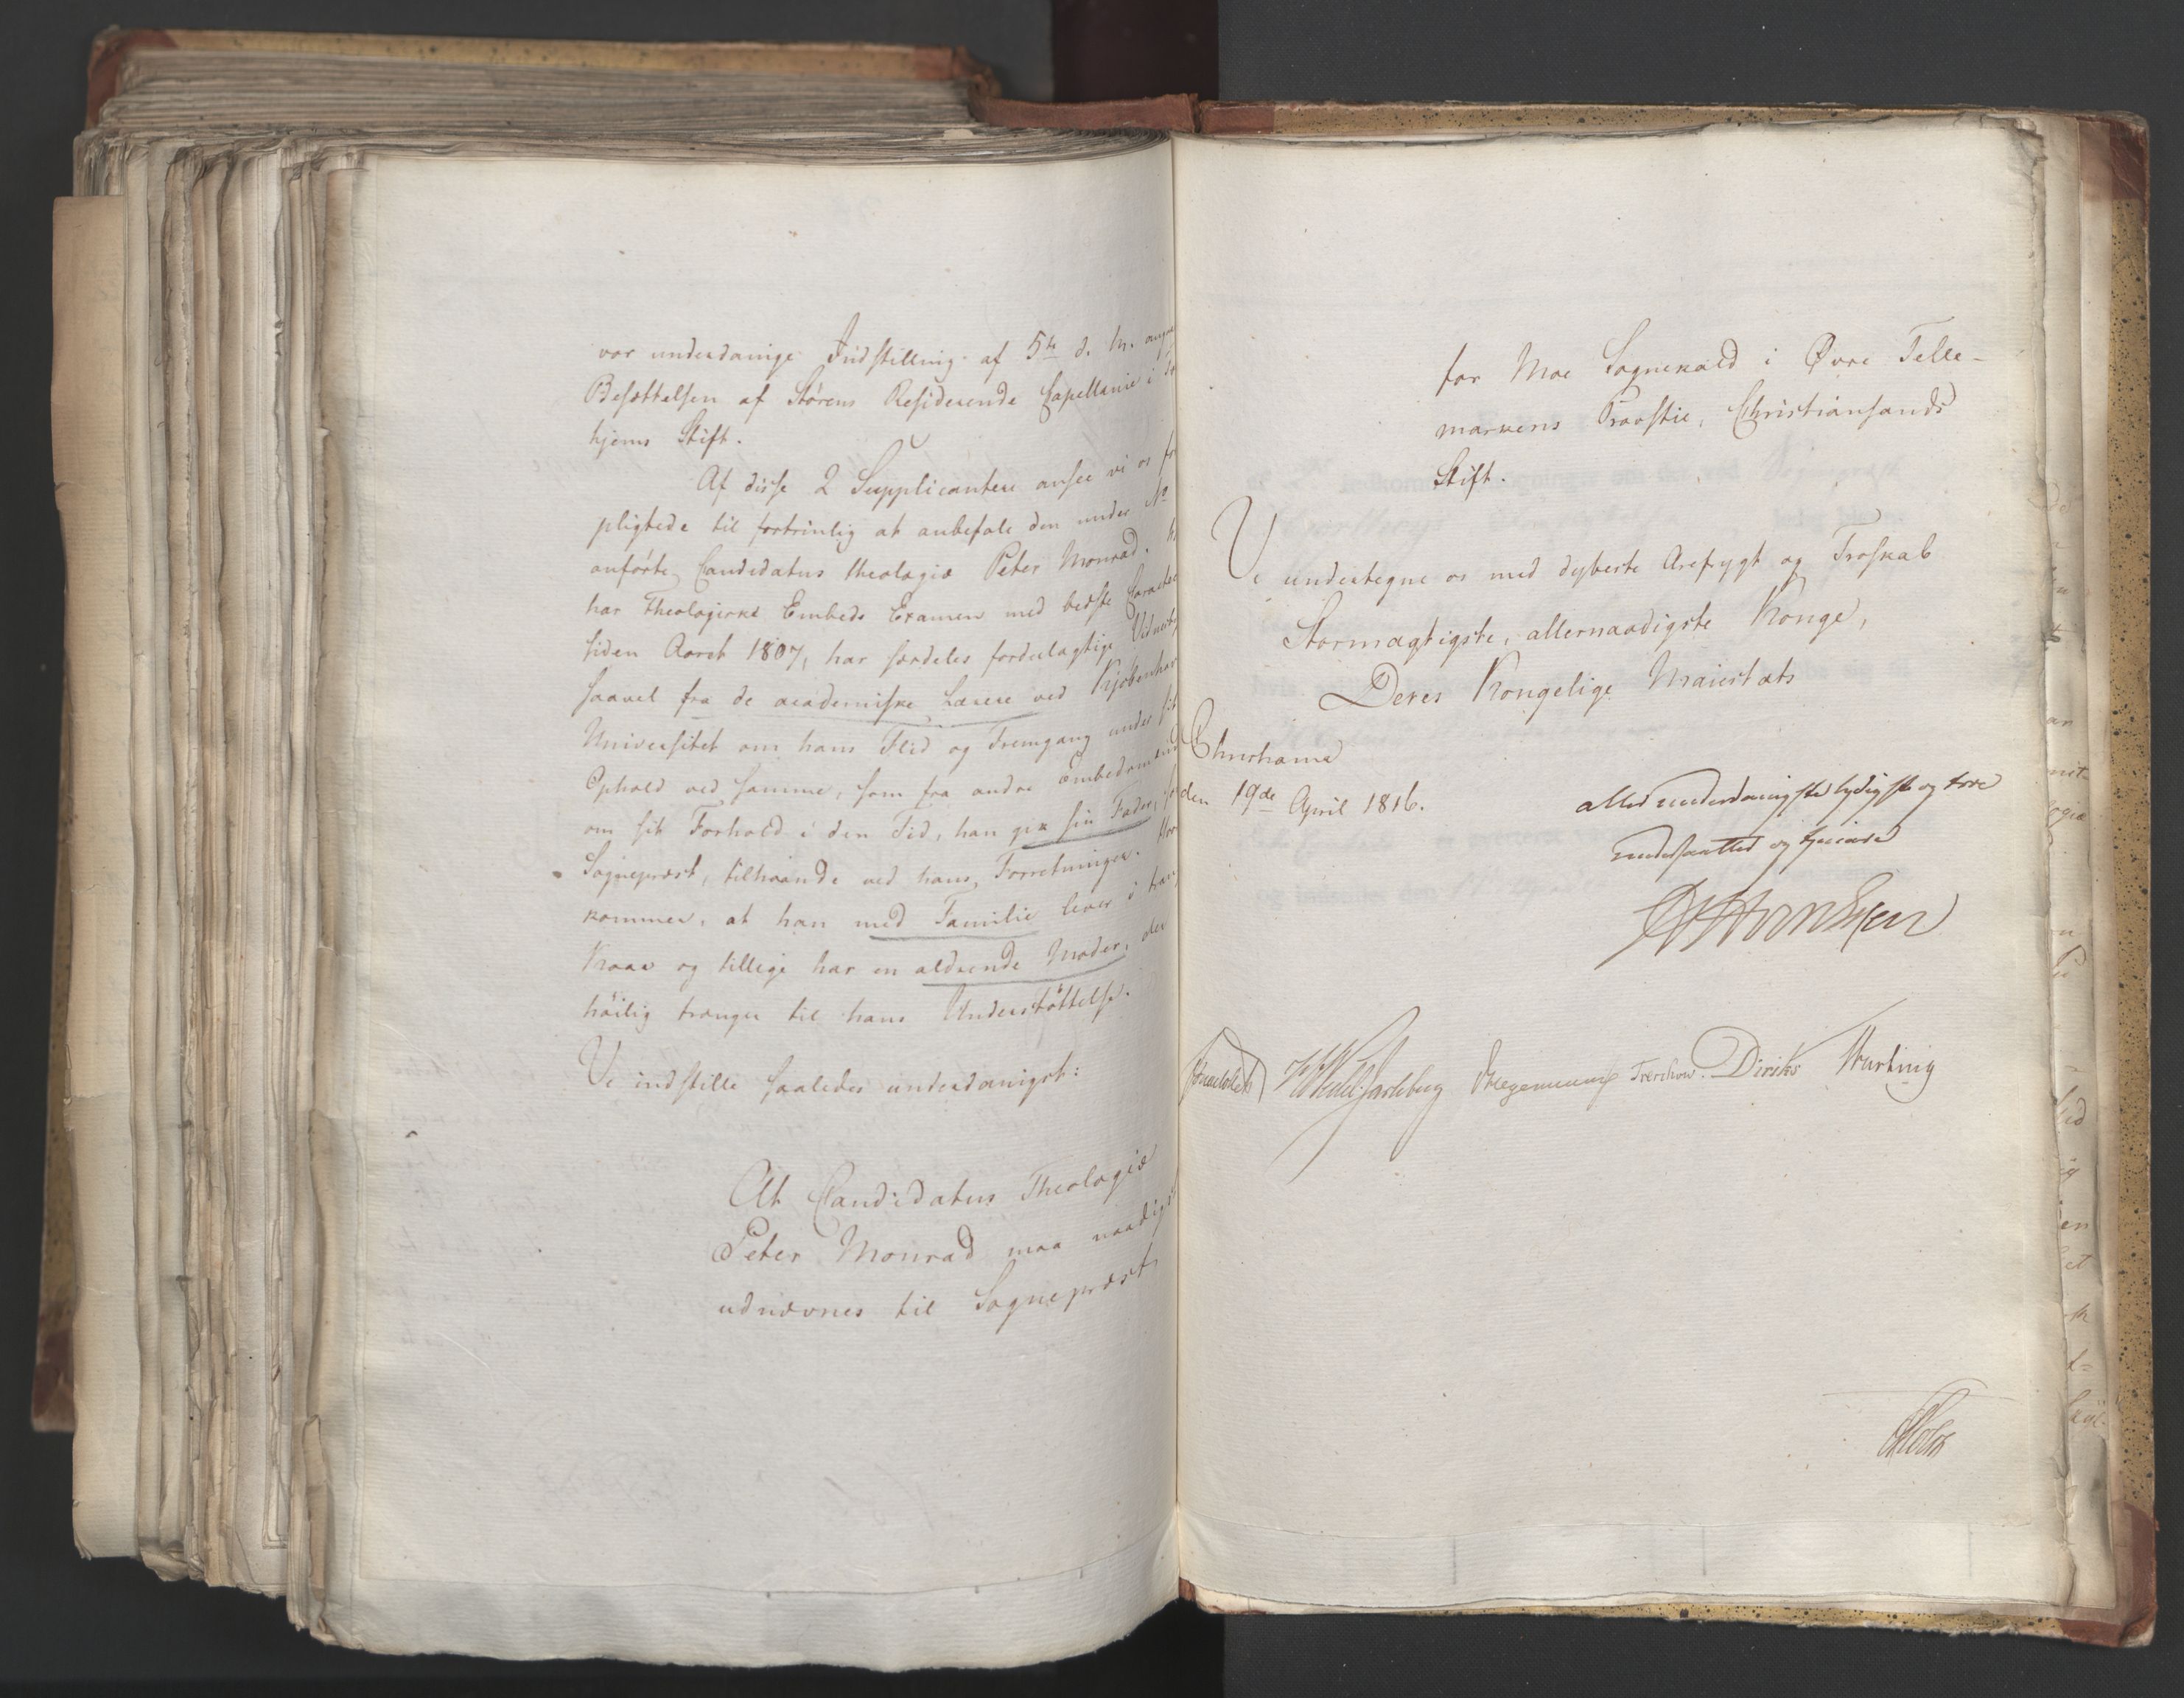 vor underdanige Indstilling af 5te d. M. ang
Besættelsen af Størens Residerende Capellanie i
hjems Stift.
Af disse 2 Supplicantere ansee vi os for
pligtede til fortrinlig at anbefale den under No
anførte Candidatus theologiæ Peter Monrad. H
har Theologiske Embeds Examen med bedste Caractee
siden Aaret 1807, har særdeles fordeelagtige Vidnesby
saavel fra de academiske Lærere ved Kjøbenhav
Universitet om hans Flid og Fremgang under sit
Ophold ved samme, som fra andre Embedsmænd
om sit Forhold i den Tid, han gik sin Fader, so
Sognepræst, tilhaande ved hans Forretninger. Hor
kommer, at han med Familie lever i tran
Kaar og tillige har en aldrende Moder, der
høilig trænger til hans Understøttelse.
Vi indstille saaledes underdanigst:
At Candidatus Theologiæ
Peter Monrad maa naadigst
udnævnes til Sognepræst
for Moe Sognekald i Øvre Telle-
markens Provstie, Christiansands
Stift.
Vi undertegne os med dybeste Ærefrygt og Troskab
Stormægtigste, allernaadigste Konge,
Deres Kongelige Maiestæts
Christiania
den 19de April 1816.
allerunderdanigste lydigste og troe
undersaatter og tjenere
Sommerhielm
HWedel Jarlsberg Hegermann Treschow. Diriks Mariboe
Holst